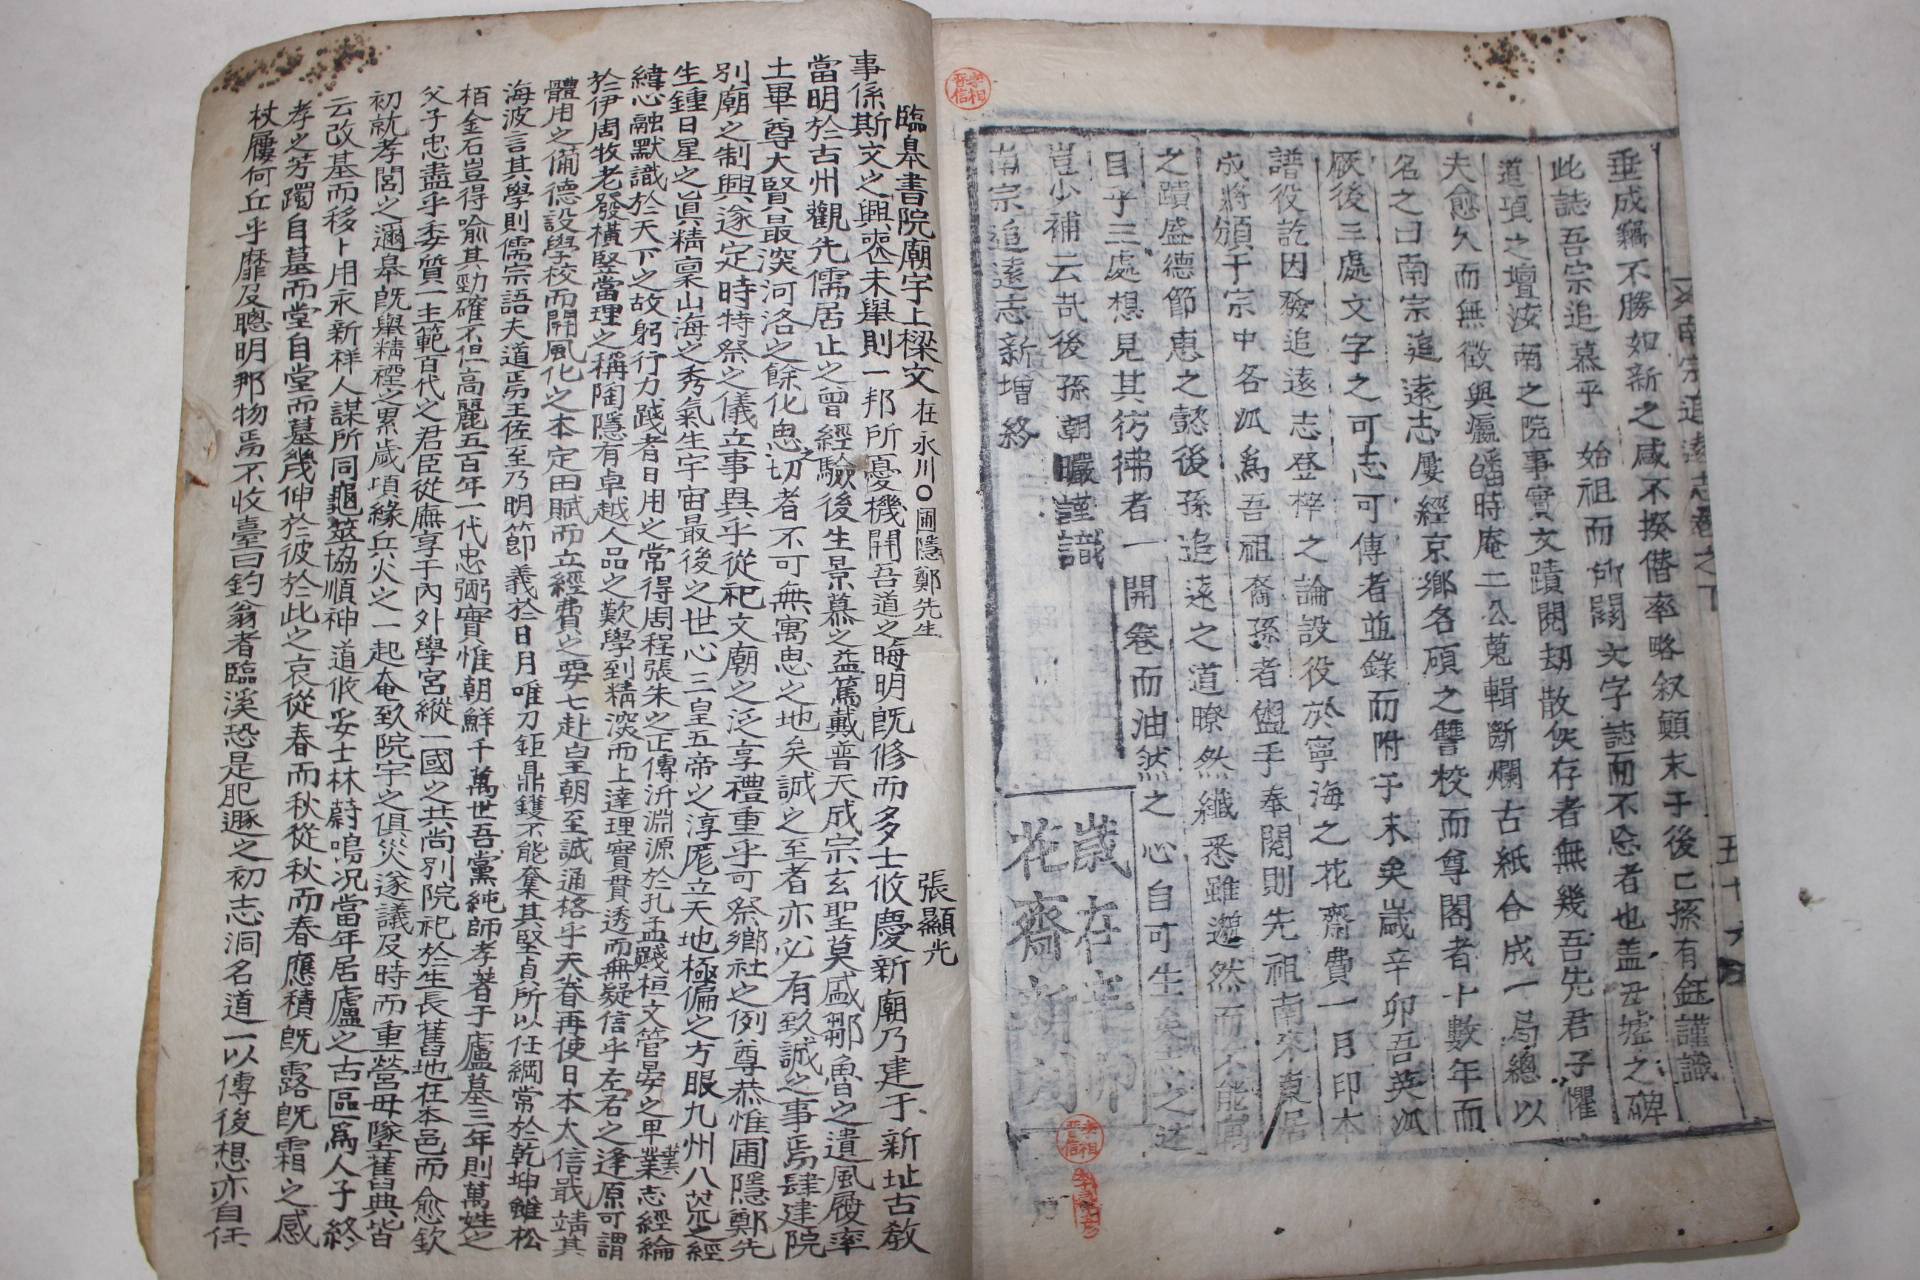 垂成竊不勝如新之感不揆僭率略叙顛末于後己孫有鈺謹識
此誌吾宗追慕乎 始祖而所關文字誌而不忘者也盖丑墟之碑
道項之壇汝南之院事實文蹟閱刼散灰存者無幾吾先君子懼
夫愈久而無徵與瀛皤時庵二公蒐輯断爛古紙合成一局總以
名之曰南宗追遠志屢經京鄉各碩之讐校而尊閣者十數年而
厥後三處文字之可志可傳者並錄而附于末矣歲辛卯吾英泒
譜役訖因發追遠志登梓之論設役於寧海之花齋費一月印本
成將頒于宗中各泒為吾祖裔孫者盥手奉閱則先祖南來奠居
之蹟盛德節惠之懿後孫追遠之道瞭然纖悉雖邈然而不能寓
目乎三處想見其彷彿者一開卷而油然之心自可生矣志之述
豈少補云㢤後孫朝㬇謹識
南宗追遠志新增終
歲在辛卯
花齋新刊
南宗追遠志卷之下
五十六
臨皋書院廟宇上樑文 在永川〇圃隱鄭先生 張顯光
事係斯文之興喪未舉則一邦所憂機開吾道之晦明旣修而多士攸慶新廟乃建于新址古敎
當明於古州觀先儒居止之曾經驗後生景慕之益篤戴普天成宗玄聖莫盛鄒魯之遺風履率
土畢尊大賢最深河洛之餘化思切者不可無寓思之地矣誠之至者亦必有致誠之事焉肆建院
別廟之制興遂定時特祭之儀立事異乎從祀文廟之泛享禮重乎可祭鄉社之例尊恭惟圃隱鄭先
生鍾日星之眞精稟山海之秀氣生宇宙最後之世心三皇五帝之淳厖立天地極偏之方眼九州八荒之經
緯心融默識於天下之故躬行力踐者日用之常得周程張朱之正傳沂淵源於孔孟賤桓文管晏之卑業志經綸
於伊周牧老發橫竪當理之稱陶隱有卓越人品之歎學到精深而上達理實貫透而無疑信乎左右之逢原可謂
體用之備德設學校而開風化之本定田賦而立經費之要七赴皇朝至誠通格乎天眷再使日本大信戢靖其
海波言其學則儒宗語夫道焉王佐至乃明節義於日月唯刀鉅鼎鑊不能奪其堅貞所以任綱常於乾坤雖松
栢金石豈得喩其勁確不但高麗五百年一代忠弼實惟朝鮮千萬世吾黨純師孝著于廬墓三年則萬姓之
父子忠盡乎委質一主範百代之君臣從廡享于內外學宮縱一國之共尙別院祀於生長舊地在本邑而愈欽
初就孝閭之邇皋旣舉精禋之累歲頃緣兵火之一起奄致院宇之俱災遂議及時而重營毋墜舊典皆
云改基而移卜用永新祥人謀所同龜筮協順神道攸妥士林蔚鳴况當年居廬之古區爲人子終
孝之芳躅自墓而堂自堂而墓幾伸於彼於此之哀從春而秋從秋而春應積旣露旣霜之感
杖屨何丘乎靡及聰明那物焉不收臺曰釣翁者臨溪恐是肥遯之初志洞名道一以傳後想亦自任